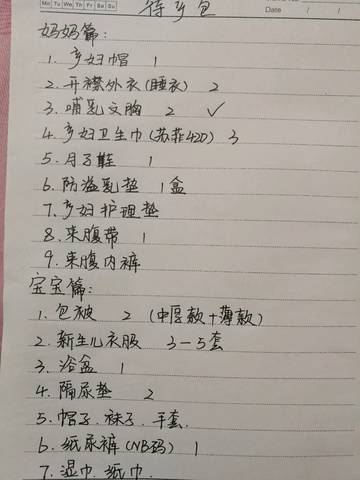 Mo Tu We Th Fr Sa Su
Date / /
待产包
妈妈篇：
1. 产妇帽 1
2. 开襟外衣(睡衣) 2
3. 哺乳文胸 2 ✓
4. 产妇卫生巾(苏菲420) 3
5. 月子鞋 1
6. 防溢乳垫 1盒
7. 产妇护理垫
8. 束腹带 1
9. 束腹内裤
宝宝篇：
1. 包被 2 (中厚款+薄款)
2. 新生儿衣服 3-5套
3. 浴盆 1
4. 隔尿垫 2
5. 帽子. 袜子. 手套.
6. 纸尿裤(NB码) 1
7. 湿巾. 纸巾.